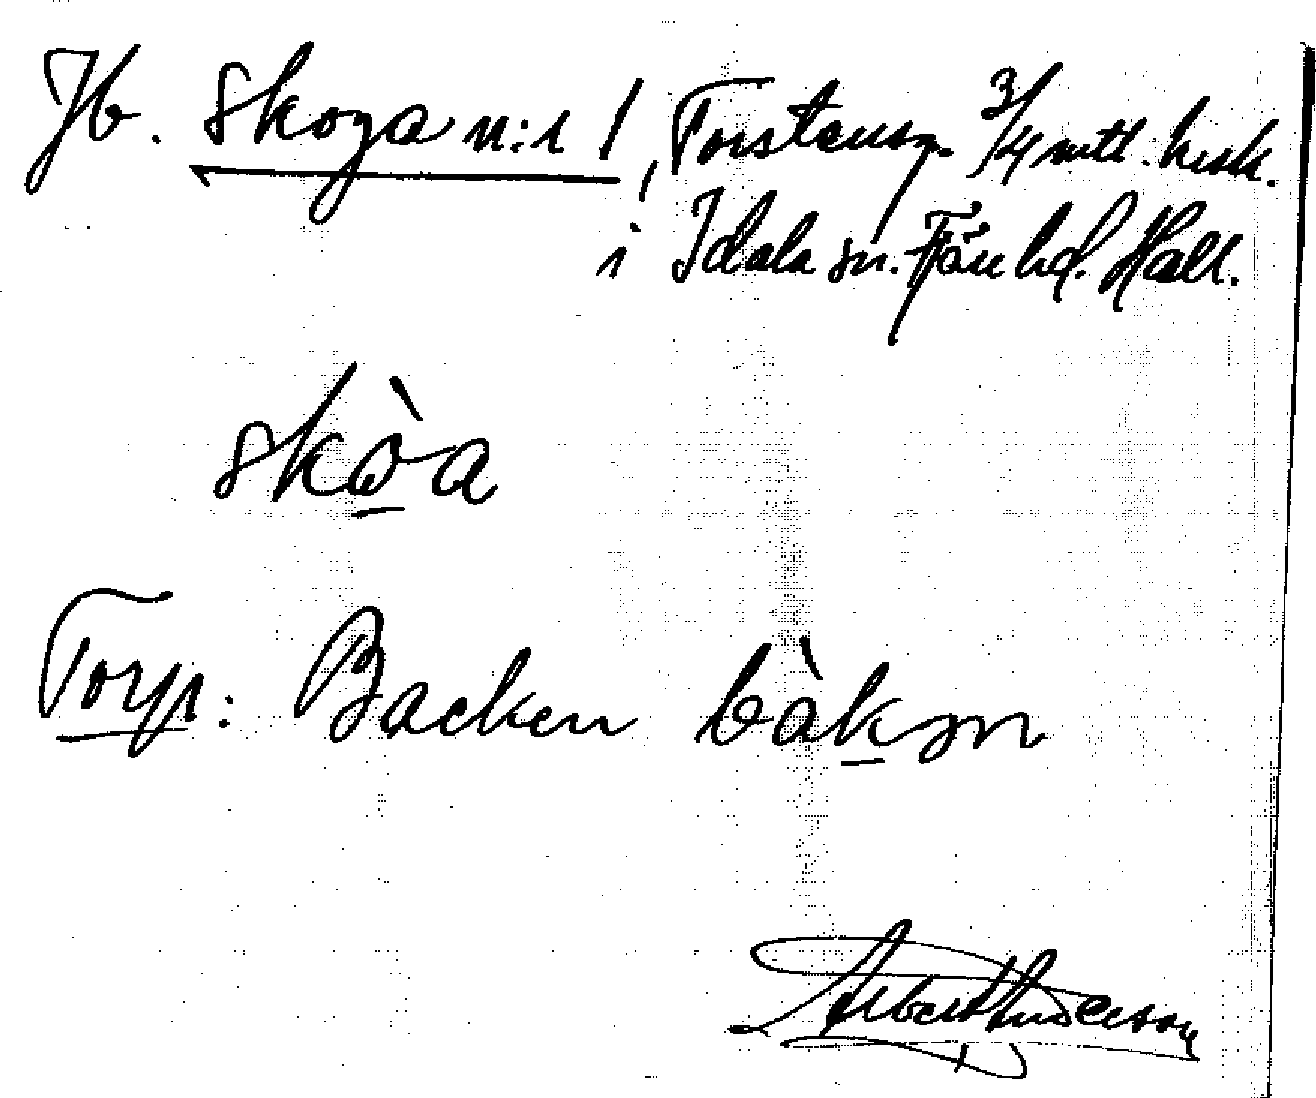 Jb. Skoga n:1 Torstensg. 3/4 mtl. krsk.
i Idala sn. Fjäre hd. Hall.
skòa
Torp: Backen bàkən
Albert Anderson